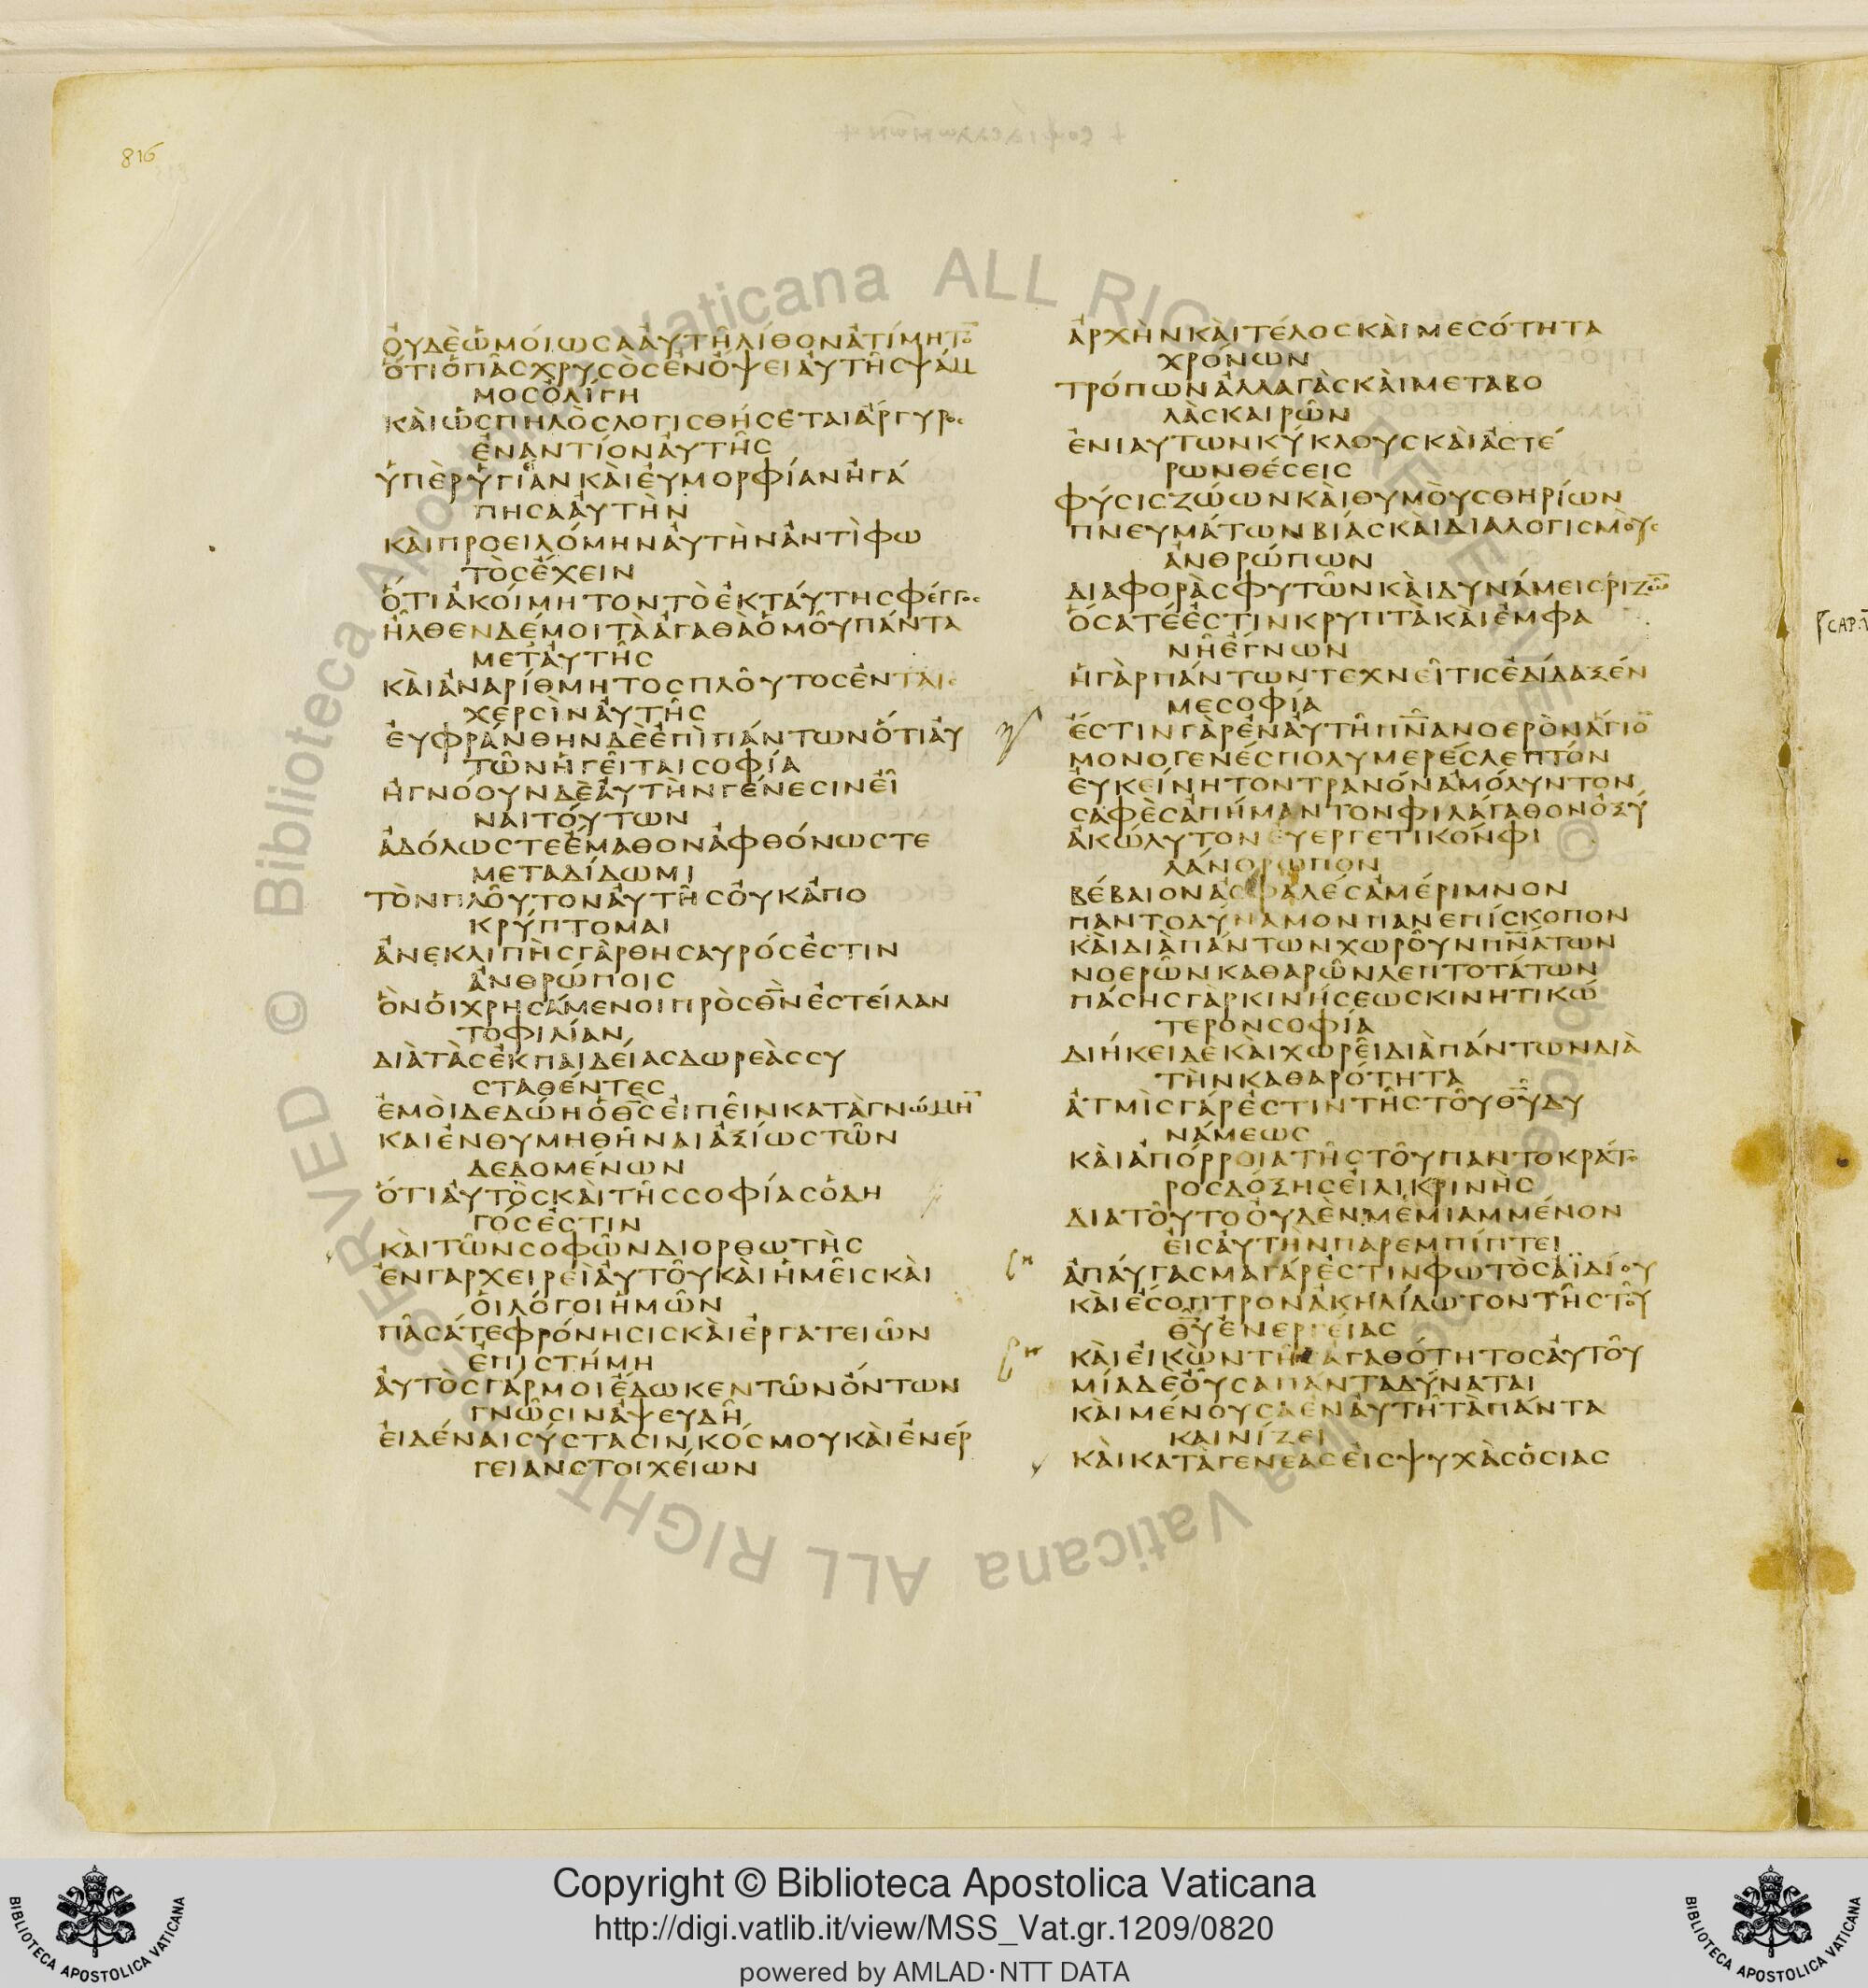 816
ὀυδὲὡμόιωσααὐτῆλίθονἀτίμητο̅
ὅτιὁπᾶσχρυσὸσἐνὄψειἀυτῆσψάμ
μοσὀλίγη
κὰιὡσπηλὸσλογισθήσεταιἄργυροσ
ἐναντίονἀυτῆσ
ὑπὲρὑγίειανκὰιἐυμορφίανἠγά
πησααὐτὴν
κὰιπροειλόμηνἀυτὴνἀντὶφω
τὸσἔχειν
ὅτιἀκόιμητοντὸἐκτάυτησφέγγοσ
ἦλθενδέμοιτὰἀγαθὰὁμοῦπάντα
μετἀυτῆσ
κὰιἀναρίθμητοσπλοῦτοσἐνταισ
χερσὶνἀυτῆσ
ἐυφράνθηνδὲἐπὶπάντωνὅτιἀυ
τῶνἡγεῖταισοφία
ἠγνόουνδὲἀυτὴνγένεσινεἶ
ναιτόυτων
ἀδόλωστεἔμαθονἀφθόνωστε
μεταδίδωμι
τὸνπλοῦτονἀυτῆσὀυκἀπο
κρύπτομαι
ἀνεκλιπὴσγὰρθησαυρόσἐστιν
ἀνθρώποισ
ὃνὁιχρησάμενοιπρὸσθ̅ν̅ἐστείλαν
τοφιλίαν
διὰτὰσἐκπαιδείασδωρεὰσσυ
σταθέντεσ
ἐμὸιδεδώηὁθ̅σ̅ἐιπεῖνκατὰγνώμη̅
καιἐνθυμηθῆναιἀξίωστῶν
δεδομένων
ὅτιἀυτὸσκὰιτῆσσοφίασὁδη
γόσἐστιν
κὰιτῶνσοφῶνδιορθωτὴσ
ἐνγαρχειρεὶἀυτοῦκὰιἡμεῖσκὰι
ὁιλόγοιἡμῶν
πᾶσάτεφρόνησισκὰιἐργατειῶν
ἐπιστήμη
ἀυτὸσγάρμοιἔδωκεντῶνὄντων
γνῶσινἀψευδῆ
ἐιδέναισύστασινκόσμουκὰιἐνέρ
γειανστοιχείων
ἀρχὴνκὰιτέλοσκὰιμεσότητα
χρόνων
τρόπωνἀλλαγὰσκὰιμεταβο
λὰσκαιρῶν
ἐνιαυτωνκύκλουσκὰιἀστέ
ρωνθέσεισ
φύσισζώωνκὰιθυμὸυσθηρίων
πνευμάτωνβίασκὰιδιαλογισμὸυσ
ἀνθρώπων
διαφορὰσφυτῶνκὰιδυνάμεισῥιζῶ̅
ὅσατέἐστινκρυπτὰκὰιἐμφα
νῆἔγνων
ἡγὰρπάντωντεχνεῖτισἐδίδαξέν
μεσοφία
ἔστινγὰρἐναὐτῆπν̅α̅νοερὸνἅγιο̅
μονογενέσπολυμερέσλεπτόν
ἐυκείνητοντρανόναμόλυντον
σαφὲσἀπήμαντονφιλάγαθονὀξύ
ἀκώλυτονευεργετικόνφι
λάνθρωπον
βέβαιονἀσφαλέσἀμέριμνον
παντοδύναμονπανεπίσκοπον
κὰιδιὰπάντωνχωροῦνπν̅ά̅των
νοερῶνκαθαρῶνλεπτοτάτων
πάσησγὰρκινήσεωσκινητικώ
τερονσοφία
διήκειδὲκὰιχωρεῖδιὰπάντωνδιὰ
τὴνκαθαρότητα
ἀτμὶσγάρἐστιντῆστοῦθ̅υ̅δυ
νάμεωσ
κὰιἀπόρροιατῆστοῦπαντοκράτο
ροσδόξησἐιλικρινὴσ
διατοῦτοὀυδὲνμεμιαμμένον
ἐισἀυτὴνπαρεμπίπτει
ἀπάυγασμαγάρἐστινφωτὸσἀϊδίου
κὰιἔσοπτρονἀκηλίδωτοντῆστοῦ
θ̅υ̅ἐνεργείασ
κὰιἐικὼντῆσἀγαθότητοσἀυτοῦ
μίαδὲοὖσαπάνταδύναται
κὰιμένουσαἐνἀυτῆτὰπάντα
καινίζει
κὰικατὰγενεὰσἐισψυχὰσὁσίασ
Copyright © Biblioteca Apostolica Vaticana
http://digi.vatlib.it/view/MSS_Vat.gr.1209/0820
powered by AMLAD·NTT DATA
BIBLIOTECA APOSTOLICA VATICANA
BIBLIOTECA APOSTOLICA VATICANA